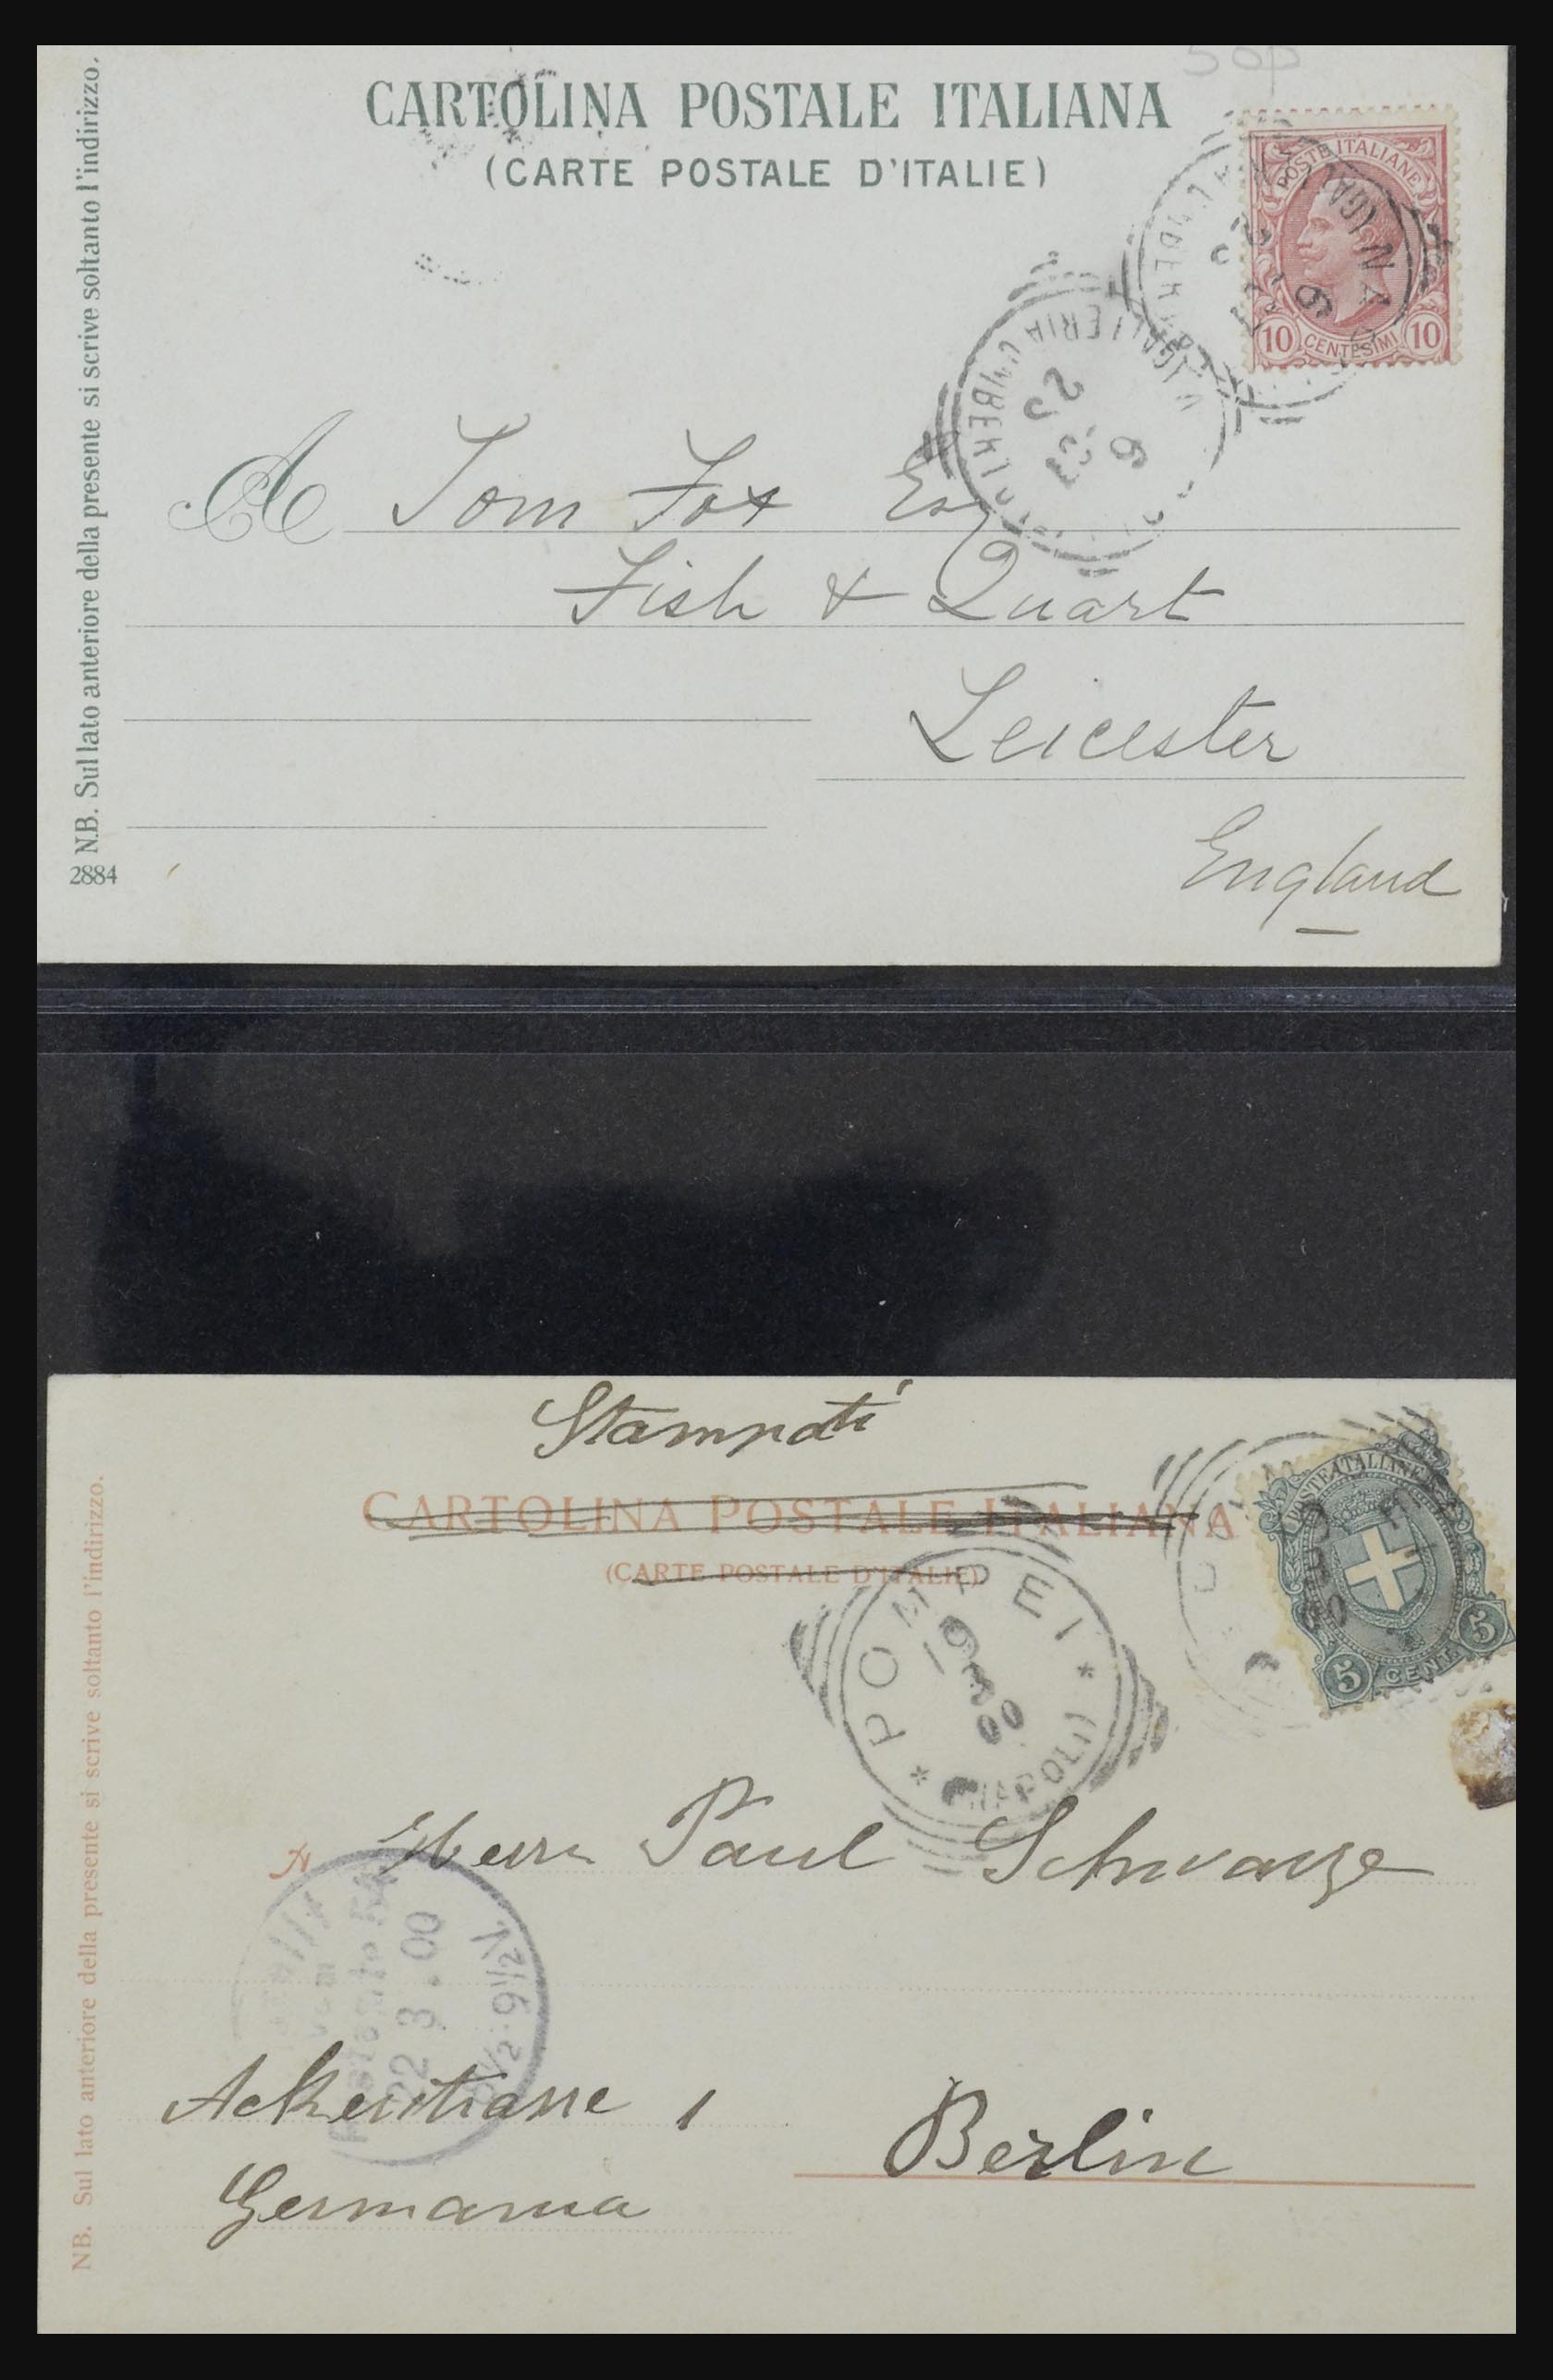 50p
CARTOLINA POSTALE ITALIANA
(CARTE POSTALE D'ITALIE)
POSTE ITALIANE
10 CENTESIMI 10
N.B. Sul lato anteriore della presente si scrive soltanto l'indirizzo.
2884
A Tom Fox Esq
Fish & Quart
Leicester
England
Stampati
CARTOLINA POSTALE ITALIANA
(CARTE POSTALE D'ITALIE)
POSTE ITALIANE
5 CENT. 5
POMPEI
19 3 00
(NAPOLI)
NB. Sul lato anteriore della presente si scrive soltanto l'indirizzo.
A Herrn Paul Schwarze
22 3.00
9½V.
Ackerstrasse 1
Berlin
Germania